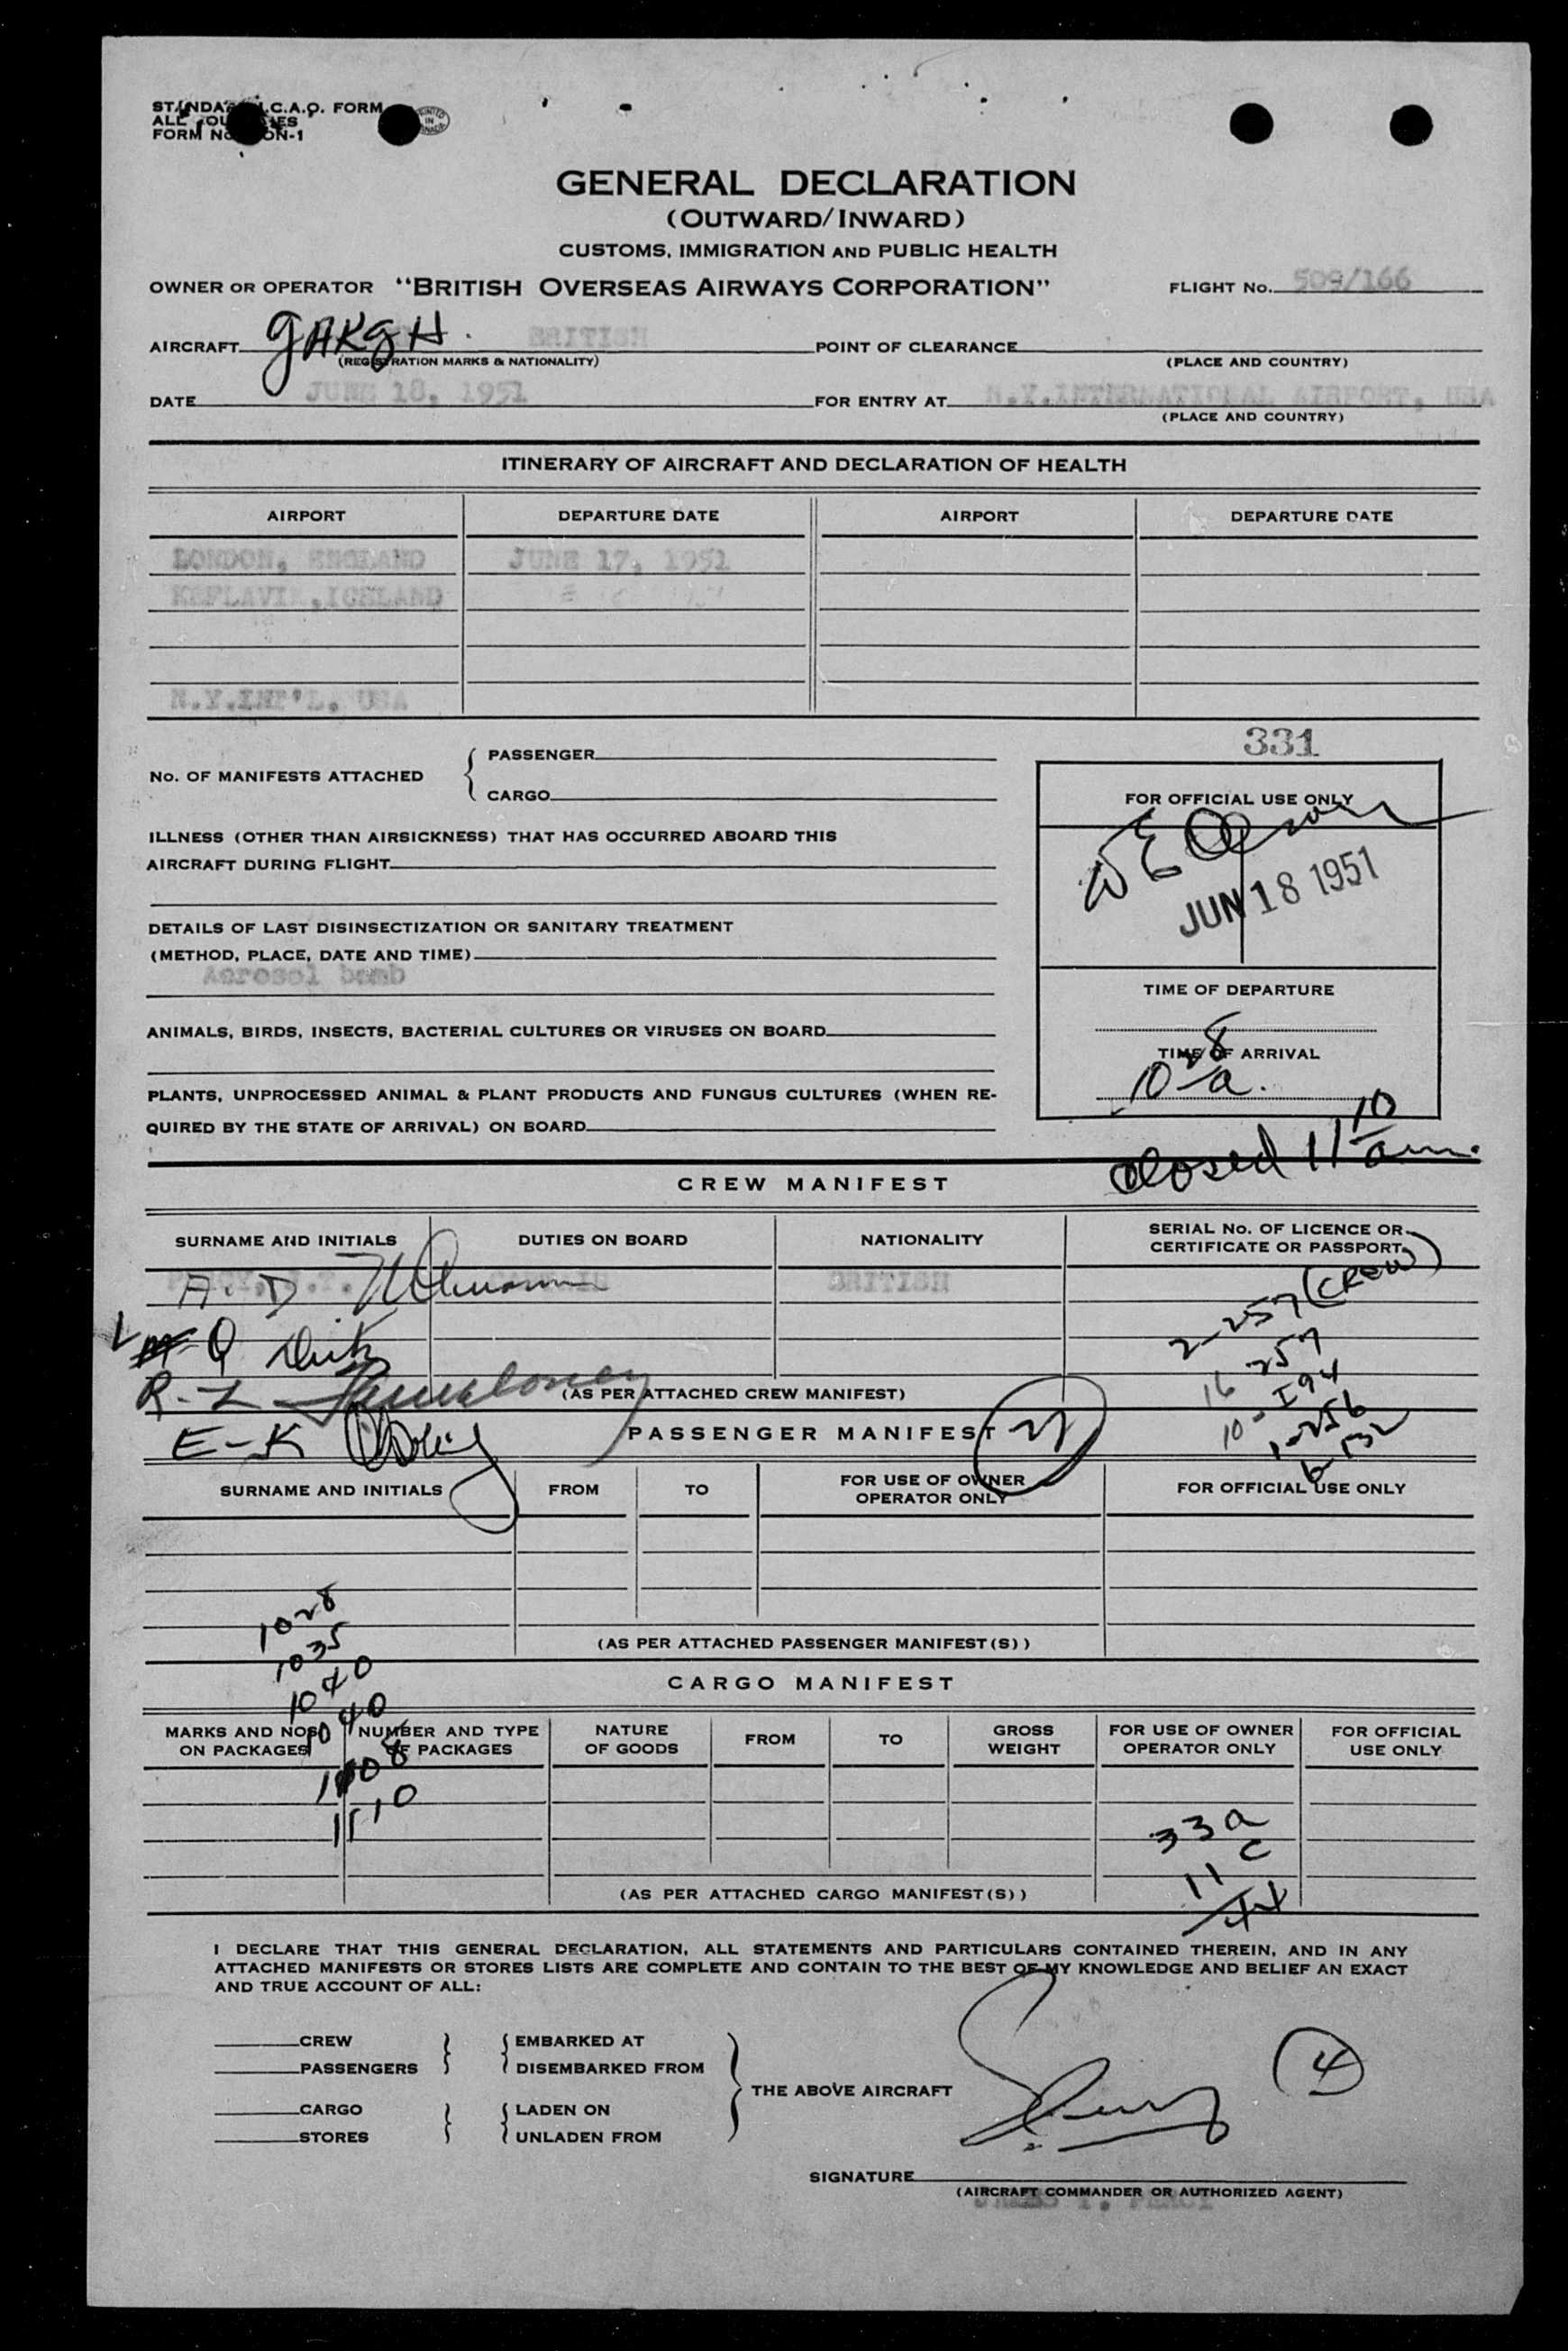 C.A.O. FORM
FORM No. ON-1
PRINTED IN CANADA
GENERAL DECLARATION
(OUTWARD/INWARD)
CUSTOMS, IMMIGRATION AND PUBLIC HEALTH
OWNER OR OPERATOR "BRITISH OVERSEAS AIRWAYS CORPORATION" FLIGHT No. 509/166
AIRCRAFT GAKGH. BRITISH POINT OF CLEARANCE
(REGISTRATION MARKS & NATIONALITY) (PLACE AND COUNTRY)
DATE JUNE 18, 1951 FOR ENTRY AT N.Y.INTERNATIONAL AIRPORT, USA
(PLACE AND COUNTRY)
ITINERARY OF AIRCRAFT AND DECLARATION OF HEALTH
AIRPORT DEPARTURE DATE AIRPORT DEPARTURE DATE
LONDON, ENGLAND JUNE 17, 1951
KEFLAVIK,ICELAND
N.Y.INT'L. USA
331
No. OF MANIFESTS ATTACHED { PASSENGER
CARGO
FOR OFFICIAL USE ONLY
W E Olson
JUN 18 1951
ILLNESS (OTHER THAN AIRSICKNESS) THAT HAS OCCURRED ABOARD THIS
AIRCRAFT DURING FLIGHT
DETAILS OF LAST DISINSECTIZATION OR SANITARY TREATMENT
(METHOD, PLACE, DATE AND TIME)
Aerosol bomb
TIME OF DEPARTURE
ANIMALS, BIRDS, INSECTS, BACTERIAL CULTURES OR VIRUSES ON BOARD
TIME OF ARRIVAL
10 28 a.
PLANTS, UNPROCESSED ANIMAL & PLANT PRODUCTS AND FUNGUS CULTURES (WHEN RE-
QUIRED BY THE STATE OF ARRIVAL) ON BOARD
closed 11 10 am.
CREW MANIFEST
SURNAME AND INITIALS DUTIES ON BOARD NATIONALITY SERIAL No. OF LICENCE OR CERTIFICATE OR PASSPORT
PERCY, J.T. CAPTAIN BRITISH
A. D.
2-257 (CREW)
Q Dick
16 257
R-L
(AS PER ATTACHED CREW MANIFEST)
10-I94
E-K
PASSENGER MANIFEST 27
1-256
6-132
SURNAME AND INITIALS FROM TO FOR USE OF OWNER OPERATOR ONLY FOR OFFICIAL USE ONLY
1028
1035
(AS PER ATTACHED PASSENGER MANIFEST(S))
1040
CARGO MANIFEST
1040
MARKS AND NOS. ON PACKAGES NUMBER AND TYPE OF PACKAGES NATURE OF GOODS FROM TO GROSS WEIGHT FOR USE OF OWNER OPERATOR ONLY FOR OFFICIAL USE ONLY
1108
1110
33 a
11 c
44
(AS PER ATTACHED CARGO MANIFEST(S))
I DECLARE THAT THIS GENERAL DECLARATION, ALL STATEMENTS AND PARTICULARS CONTAINED THEREIN, AND IN ANY
ATTACHED MANIFESTS OR STORES LISTS ARE COMPLETE AND CONTAIN TO THE BEST OF MY KNOWLEDGE AND BELIEF AN EXACT
AND TRUE ACCOUNT OF ALL:
CREW EMBARKED AT
PASSENGERS DISEMBARKED FROM
THE ABOVE AIRCRAFT
4
CARGO LADEN ON
STORES UNLADEN FROM
SIGNATURE
(AIRCRAFT COMMANDER OR AUTHORIZED AGENT)
JAMES T. PERCY